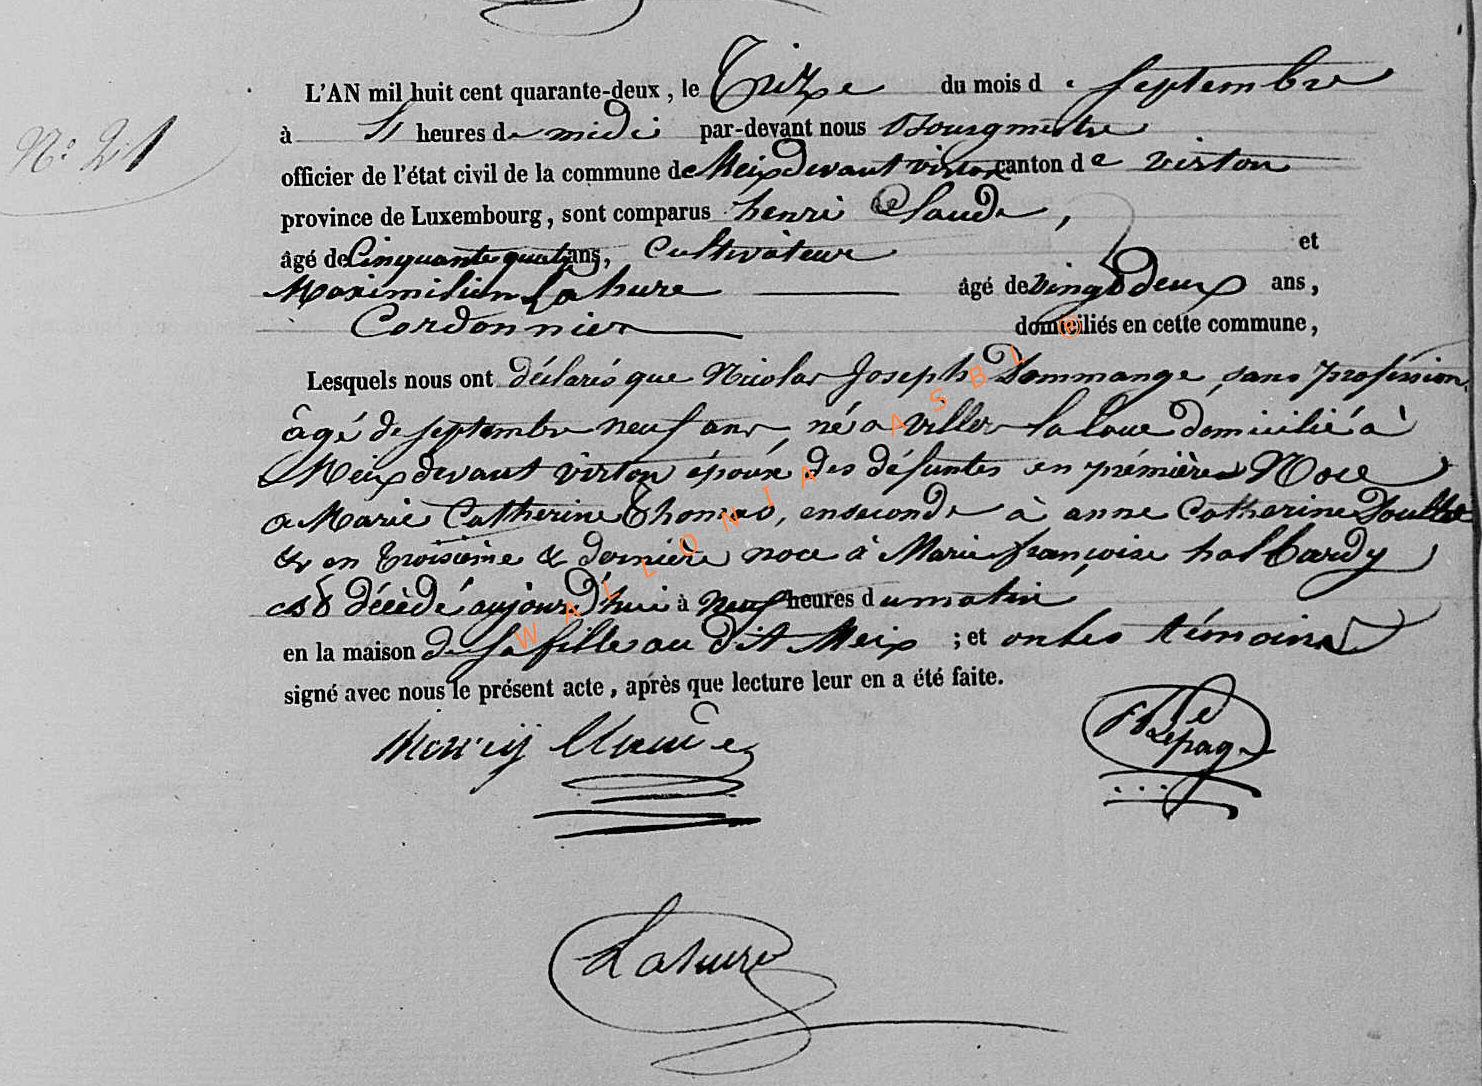 N.º 21
L'AN mil huit cent quarante-deux, le Treize du mois de septembre
à heures de midi par-devant nous Bourgmestre
officier de l'état civil de la commune de Meix devant virton canton de virton
province de Luxembourg, sont comparus henri Claude,
âgé de Cinquante quatre ans, Cultivateur et
Maximilien Lahure âgé de vingt deux ans,
Cordonnier domiciliés en cette commune,
Lesquels nous ont déclarés que Nicolas Joseph Dommange, sans profession
âgé de septembre neuf ans, né a viller la loue domicilié à
Meix devant virton époux des défuntes en prémières Noce
a Marie Catherine Thomas, en seconde à anne Catherine
& en troisième & dernière noce à Marie françoise halbardy
est décédé aujourd'hui à Neuf heures du matin
en la maison de sa fille au dit Meix ; et ont les témoins
signé avec nous le présent acte, après que lecture leur en a été faite.
Henry Claude
Lepage
Lahure
WALLONIA ASBL ©